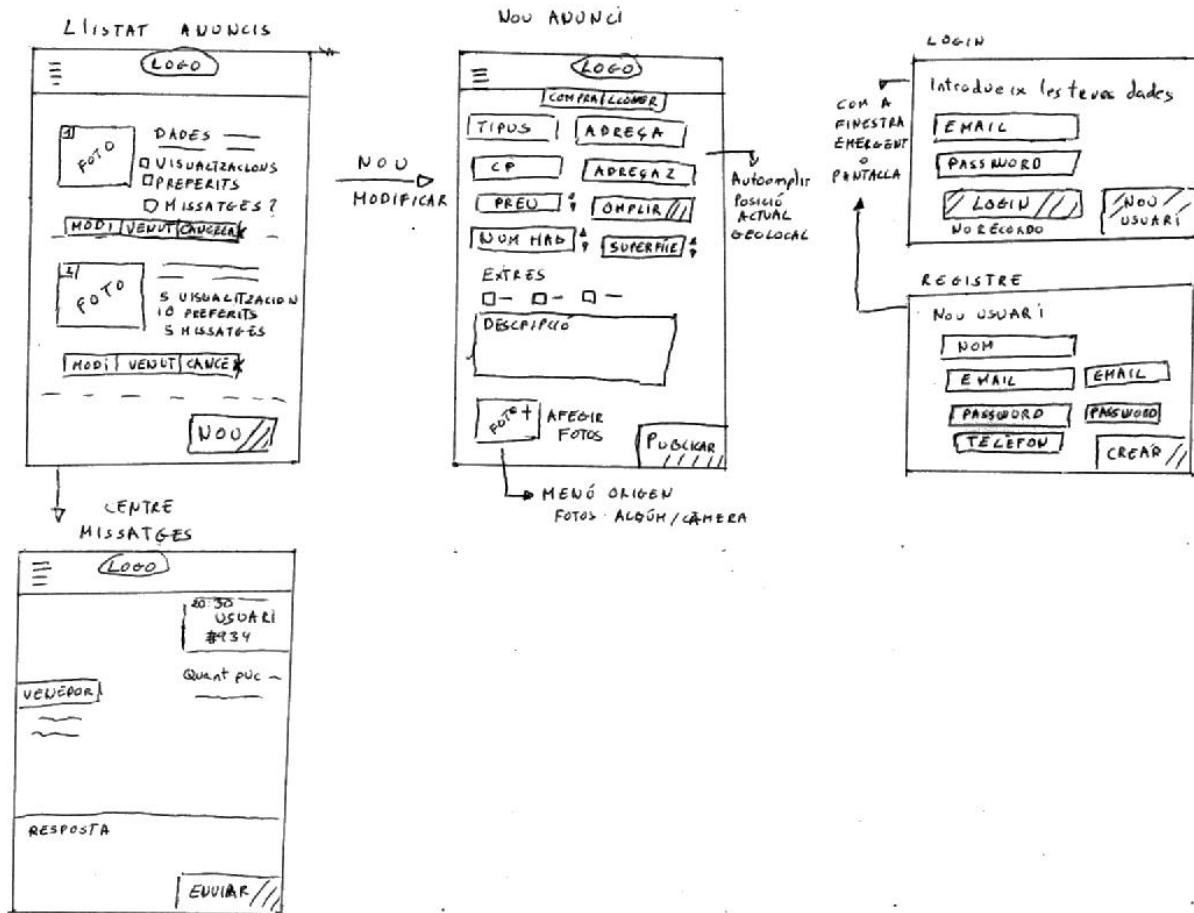 LlISTAT ANUNCIS
LOGO
1
FOTO
DADES
VISUALTZACIONS
PREFERITS
MISSATGES?
MODI VENUT CANCELA
FOTO
5 VISUALITZACION
10 PREFERITS
5 MISSATGES
MODI VENUT CANCE
NOU
NOU
MODIFICAR
NOU ANUNCI
LOGO
COMPRA LLOGUER
TIPUS
ADREÇA
CP
ADREÇA 2
PREU
OMPLIR
NUM HAB
SUPERFÍIE
EXTRES
DESCRIPCIÓ
FOTO +
AFEGIR
FOTOS
PUBLICAR
MENÚ ORIGEN
FOTOS ALBÚM/CÀMERA
Autoomplir
POSICIÓ
ACTUAL
GEOLOCAL
COM A
FINESTRA
EMERGENT
O
PANTALLA
LOGIN
Introdueix les teves dades
EMAIL
PASSWORD
LOGIN
NOU
USUARI
NO RECORDO
REGISTRE
NOU USUARI
NOM
EMAIL
EMAIL
PASSWORD
PASSWORD
TELÈFON
CREAR
CENTRE
MISSATGES
LOGO
20:30
USUARI
#934
Quant puc
VENEDOR
RESPOSTA
ENVIAR